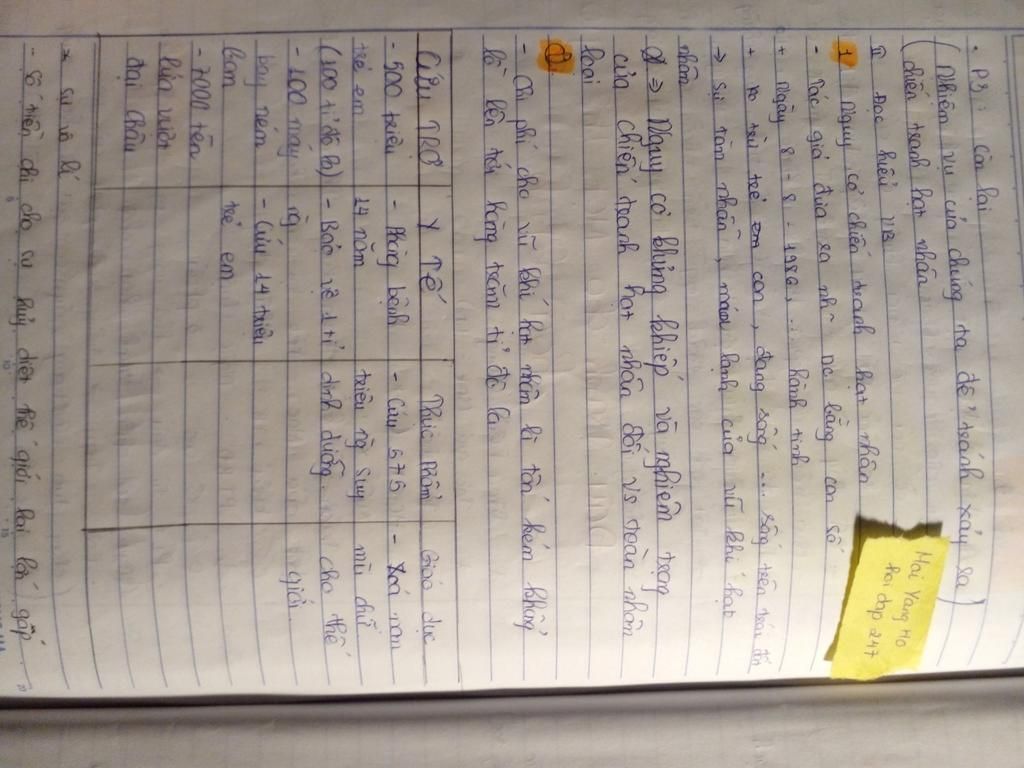 . P3: Còn lại
(Nhiệm vụ của chúng ta để tránh xảy ra)
(chiến tranh hạt nhân
II Đọc hiểu VB
1 Nguy cơ chiến tranh hạt nhân
- Tác giả đưa ra bằng con số
+ Ngày 8-8-1986, ... hành tinh
+ ko trừ trẻ con, đang sống ... sống trên trái đất
→ sự tàn nhẫn, hành của vũ khí hạt
nhân
⇒ Nguy cơ khủng khiếp và nghiêm trọng
của chiến tranh hạt nhân đối vs toàn nhân
loại
2
- Chi phí cho vũ khí hạt nhân là tốn kém khổng
lồ lên tới hàng trăm tỉ đô la
CỨU TRỢ Y TẾ Thực Phẩm Giáo dục
- 500 triệu - Phòng bệnh - Cứu 575 - Xoá nạn
trẻ em 14 năm triệu ng suy mù chữ
(100 tỉ đô la) - Bảo vệ 1 tỉ dinh dưỡng cho thế
- 100 máy ng giới
bay ném - Cứu 14 triệu
bom trẻ em
- 7000 tên
lửa vượt
đại châu
* sự vô lí
- Số tiền chi cho sự huỷ diệt thế giới lại lớn gấp
Mai Vang Ho
hoi dap 247